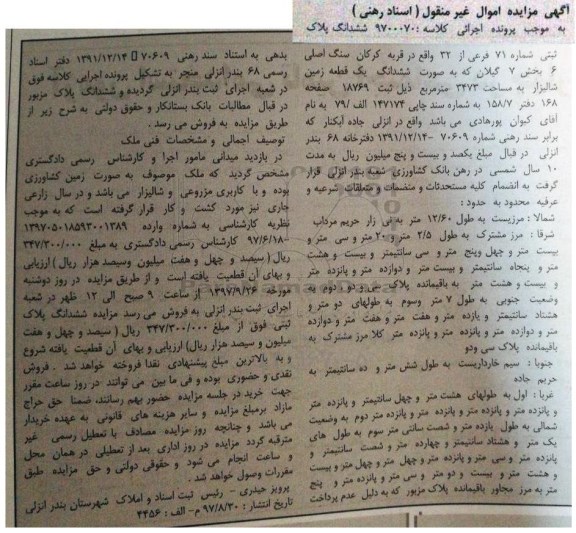 آگهی مزایده اموال غیر منقول ( اسناد رهنی )
به موجب پرونده اجرائی کلاسه : ۹۷۰۰۰۷۰ ششدانگ پلاک
ثبتی شماره ۷۱ فرعی از ۳۲ واقع در قریه کرکان سنگ اصلی
۶ بخش ۷ گیلان که به صورت ششدانگ یک قطعه زمین
شالیزار به مساحت ۳۴۷۳ مترمربع ذیل ثبت ۱۸۷۶۹ صفحه
۱۶۸ دفتر ۱۵۸/۷ به شماره سند چاپی ۱۴۷۱۷۴ الف /۷۹ به نام
آقای کیوان پورهادی می باشد واقع در انزلی جاده آبکنار که
برابر سند رهنی شماره ۷۰۶۰۹ – ۱۳۹۱/۱۲/۱۳ دفترخانه ۶۸ بندر
انزلی در قبال مبلغ یکصد و بیست و پنج میلیون ریال به مدت
۱۰ سال شمسی در رهن بانک کشاورزی شعبه بندر انزلی قرار
گرفت به انضمام کلیه مستحدثات و منضمات و متعلقات شرعیه و
عرفیه محدود به حدود :
شمالا : مرزیست به طول ۱۳/۶۰ متر به نی زار حریم مرداب
شرقا : مرز مشترک به طول ۲/۵ متر و ۲۰ متر و سی متر و
بیست متر و چهل وپنج متر و سی سانتیمتر و بیست و هشت
متر و پنجاه سانتیمتر و بیست متر و دوازده متر و پانزده متر
و بیست و هشت متر به باقیمانده پلاک سی و دو دوم به
وضعیت جنوبی به طول ۷ متر وسوم به طولهای دو متر و
هشتاد سانتیمتر و یازده متر و هفت متر و هفت متر و دوازده
متر و دوازده متر و پانزده متر و پانزده متر کلا مرز مشترک به
باقیمانده پلاک سی ودو
جنوبا : سیم خارداریست به طول شش متر و ده سانتیمتر به
حریم جاده
غربا : اول به طولهای هشت متر و چهل سانتیمتر و پانزده متر
و پانزده متر و پانزده متر و پانزده متر و پانزده متر دوم به وضعیت
شمالی به طول یازده متر و شصت سانتی متر سوم به طول های
یک متر و هشتاد سانتیمتر و چهارده متر و شصت سانتیمتر و
پانزده متر و سی متر و پانزده متر و چهل متر و چهل متر و بیست
و هشت متر و بیست و دو متر و سی متر و پانزده متر و پنج
متر به مرز مجاور باقیمانده پلاک مزبور که به دلیل عدم پرداخت
بدهی به استناد سند رهنی ۷۰۶۰۹ ۱۳۹۱/۱۲/۱۴ دفتر اسناد
رسمی ۶۸ بندر انزلی منجر به تشکیل پرونده اجرایی کلاسه فوق
در شعبه اجرای ثبت بندر انزلی گردیده و ششدانگ پلاک مزبور
در قبال مطالبات بانک بستانکار و حقوق دولتی به شرح زیر از
طریق مزایده به فروش می رسد .
توصیف اجمالی و مشخصات فنی ملک
در بازدید میدانی مامور اجرا و کارشناس رسمی دادگستری
مشخص گردید که ملک موصوف به صورت زمین کشاورزی
بوده و با کاربری مزروعی و شالیزار می باشد و در سال زراعی
جاری نیز مورد کشت و کار قرار گرفته است که به موجب
نظریه کارشناسی به شماره وارده ۱۳۹۷۰۵۰۱۸۵۹۳۰۰۱۳۸۹
–۹۷/۶/۱۸ کارشناس رسمی دادگستری به مبلغ ۳۴۷/۳۰۰/۰۰۰
ریال ( سیصد و چهل و هفت میلیون وسیصد هزار ریال ) ارزیابی
و بهای آن قطعیت یافته است و از طریق مزایده در روز دوشنبه
مورخه ۱۳۹۷/۹/۲۶ از ساعت ۹ صبح الی ۱۲ ظهر در شعبه
اجرای ثبت بندر انزلی به فروش می رسد مزایده ششدانگ پلاک
ثبتی فوق از مبلغ ۳۴۷/۳۰۰/۰۰۰ ریال ( سیصد و چهل و هفت
میلیون و سیصد هزار ریال) ارزیابی و بهای آن قطعیت یافته شروع
و به بالاترین مبلغ پیشنهادی نقدا فروخته خواهد شد . فروش
نقدی و حضوری بوده و فی ما بین می توانند در روز ساعت مقرر
جهت خرید در جلسه مزایده حضور بهم رسانند، ضمنا حق حراج
مازاد برمبلغ مزایده و سایر هزینه های قانونی به عهده خریدار
می باشد و چنانچه روز مزایده مصادف با تعطیل رسمی غیر
مترقبه گردد مزایده در روز اداری بعد از تعطیلی در همان محل
و ساعت انجام می شود و حقوقی دولتی و حق مزایده طبق
مقررات وصول خواهد شد .
پرویز حیدری – رئیس ثبت اسناد و املاک شهرستان بندر انزلی
تاریخ انتشار : ۹۷/۸/۳۰ م- الف : ۴۴۵۶